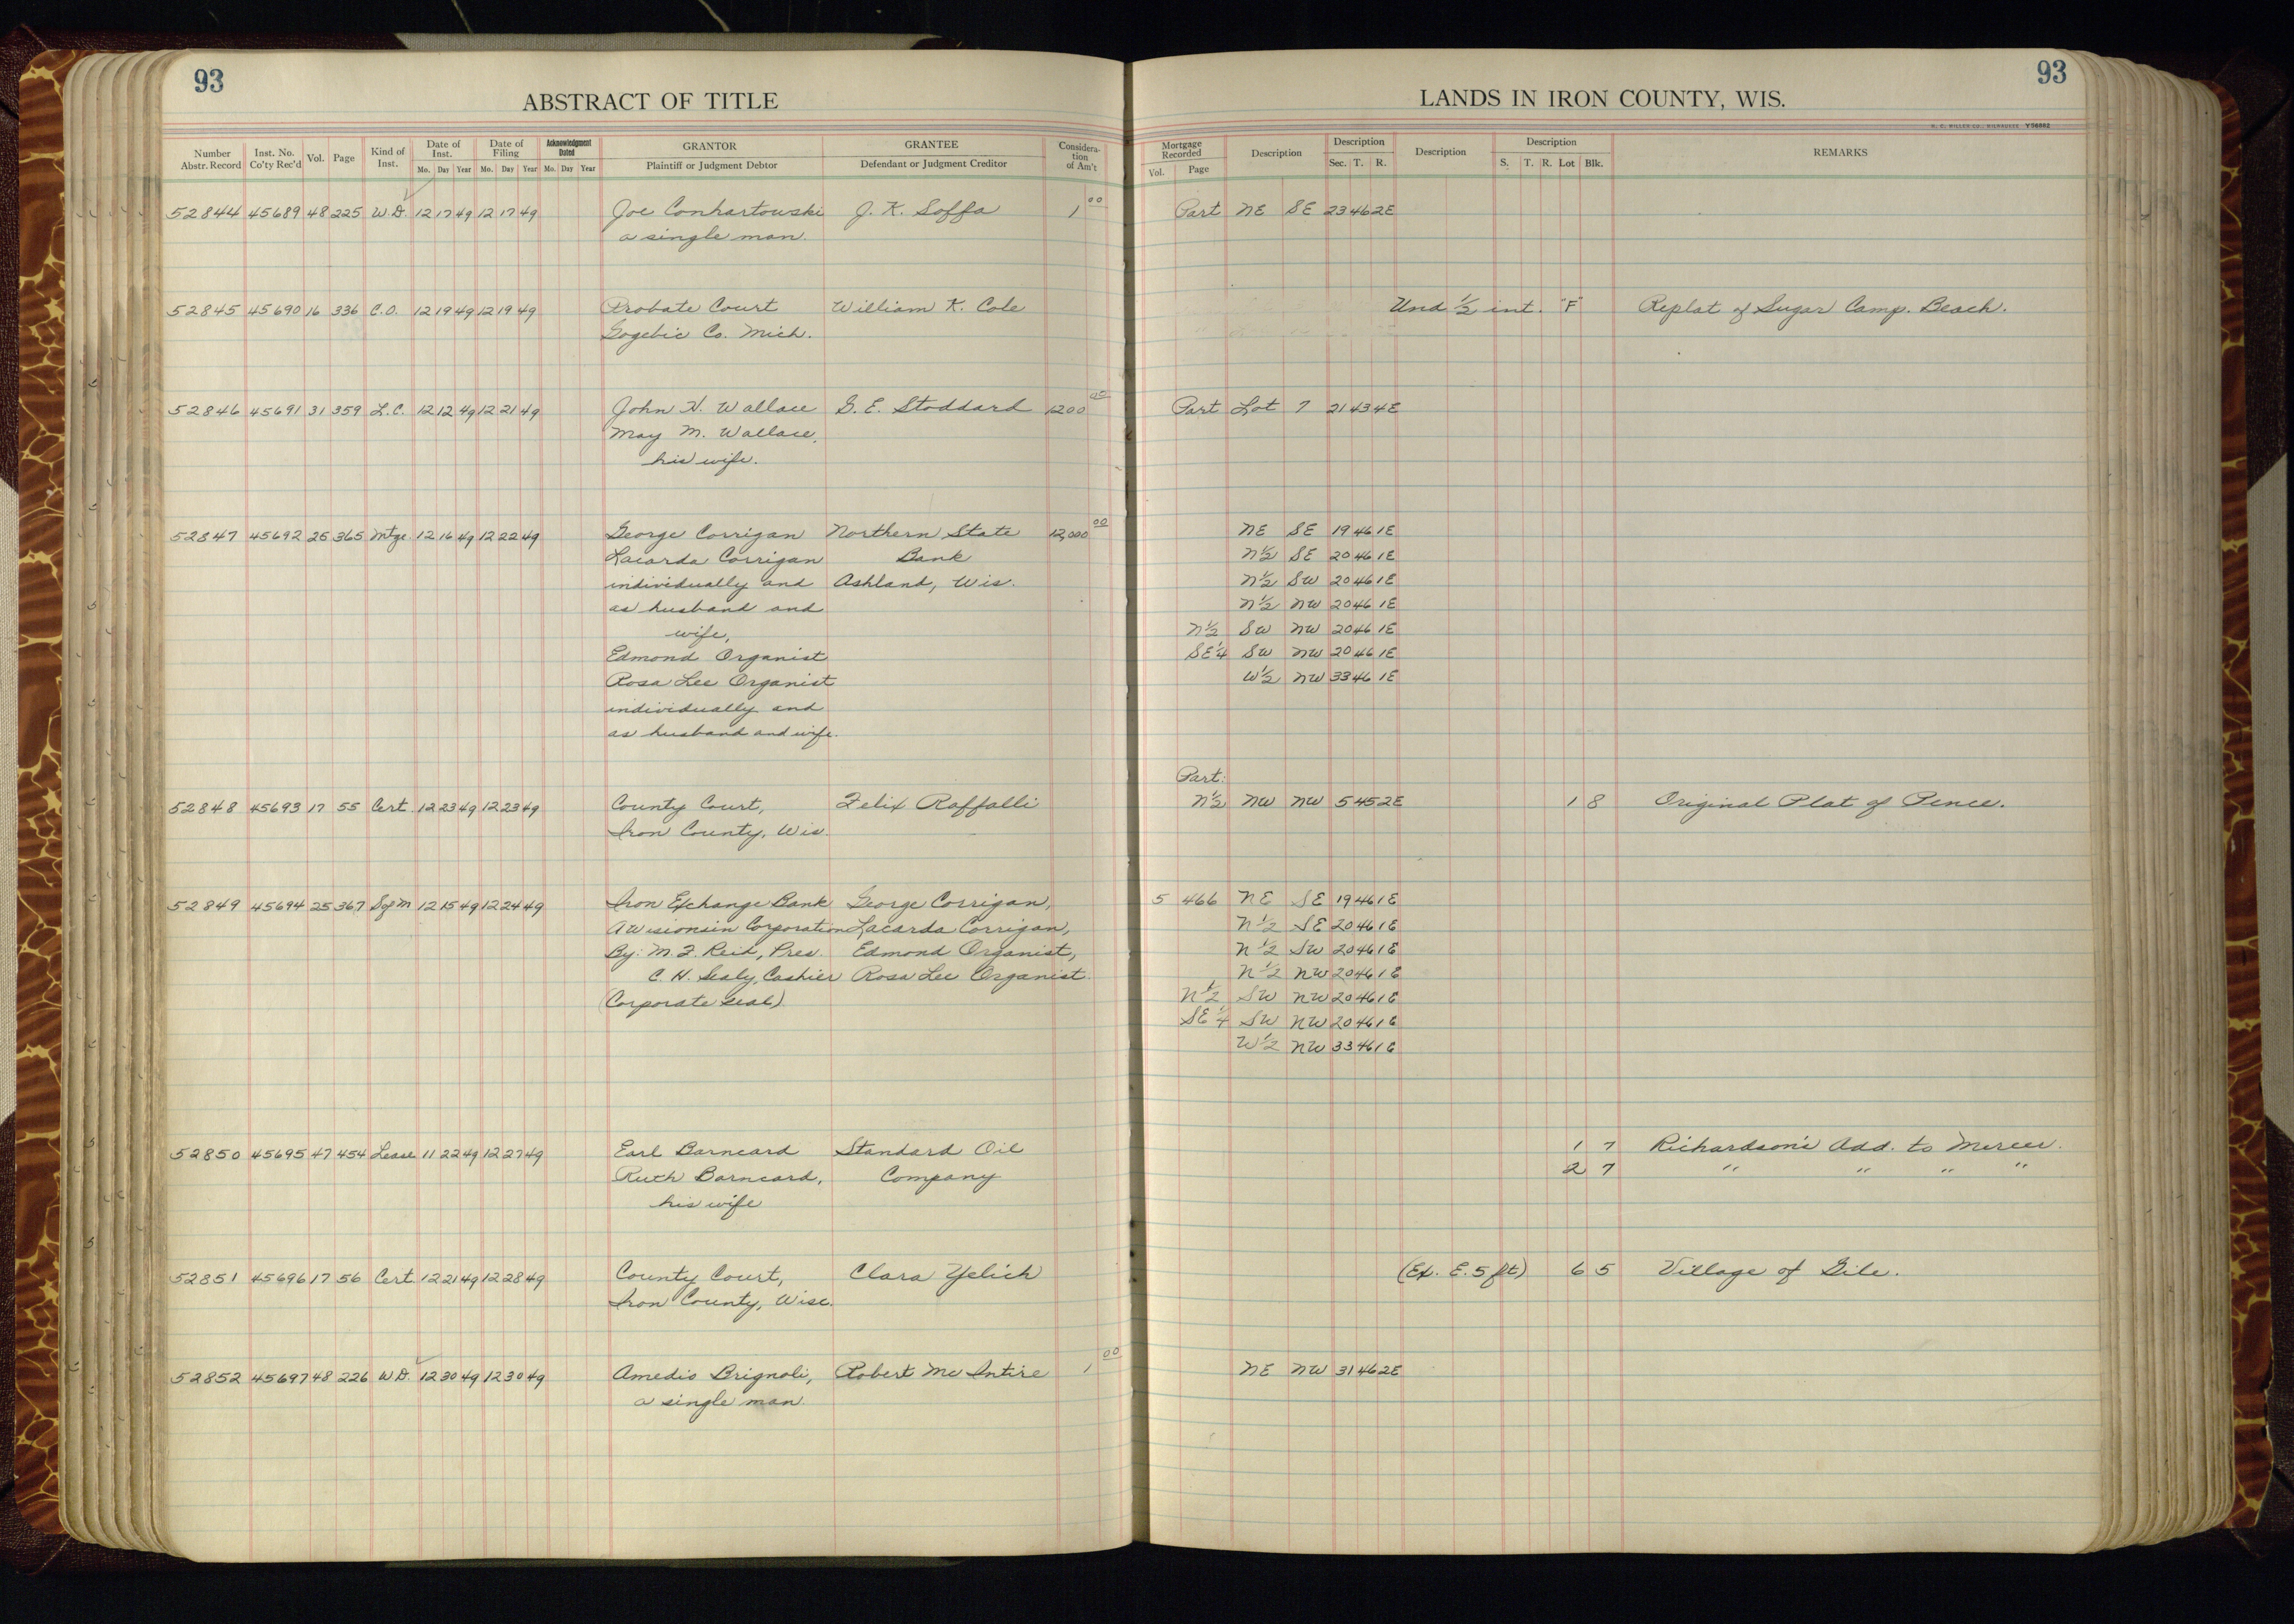 93
ABSTRACT OF TITLE
Number Abstr. Record
Inst. No. Co'ty Rec'd
Vol.
Page
Kind of Inst.
Date of Inst.
Mo. Day Year
Date of Filing
Mo. Day Year
Acknowledgment Dated
Mo. Day Year
GRANTOR
Plaintiff or Judgment Debtor
GRANTEE
Defendant or Judgment Creditor
Considera-tion of Am't
93
LANDS IN IRON COUNTY, WIS.
Mortgage Recorded
Vol. Page
Description
Description
Sec. T. R.
Description
Description
S. T. R. Lot Blk.
REMARKS
52844 45689 48 225 W.D. 12 17 49 12 17 49 Joe Conhartowski J. K. Soffa 1 00 Part NE SE 23 46 2E
a single man.
52845 45690 16 336 C.O. 12 19 49 12 19 49 Probate Court William K. Cole Und 1/2 int. "F" Replat of Sugar Camp. Beach.
Gogebic Co. Mich.
52846 45691 31 359 L.C. 12 12 49 12 21 49 John H. Wallace G. E. Stoddard 1200 00 Part Lot 7 21 43 4E
May M. Wallace,
his wife.
52847 45692 25 365 Mtge. 12 16 49 12 22 49 George Corrigan Northern State 12,000 00 NE SE 19 46 1E
Lacarda Corrigan Bank N1/2 SE 20 46 1E
individually and Ashland, Wis. N1/2 SW 20 46 1E
as husband and N1/2 NW 20 46 1E
wife, N1/2 SW NW 20 46 1E
Edmond Organist SE1/4 SW NW 20 46 1E
Rosa Lee Organist W1/2 NW 33 46 1E
individually and
as husband and wife.
Part:
52848 45693 17 55 Cert. 12 23 49 12 23 49 County Court, Felix Raffalli N1/2 NW NW 5 45 2E 1 8 Original Plat of Pence.
Iron County, Wis.
52849 45694 25 367 S of M 12 15 49 12 24 49 Iron Exchange Bank George Corrigan, 5 466 NE SE 19 46 1E
A Wisionsin Corporation Lacarda Corrigan, N1/2 SE 20 46 1E
By: M. F. Reid, Pres. Edmond Organist, N1/2 SW 20 46 1E
C. H. Sealy, Cashier Rosa Lee Organist. N1/2 NW 20 46 1E
(Corporate Seal) N1/2 SW NW 20 46 1E
SE1/4 SW NW 20 46 1E
W1/2 NW 33 46 1E
52850 45695 47 454 Lease 11 22 49 12 27 49 Earl Barneard Standard Oil 1 7 Richardson's Add. to Mercer.
Ruth Barneard, Company 2 7 " " " "
his wife
52851 45696 17 56 Cert. 12 21 49 12 28 49 County Court, Clara Yelich (Ex. E. 5 ft) 6 5 Village of Gile.
Iron County, Wisc.
52852 45697 48 226 W.D. 12 30 49 12 30 49 Amedio Brignoli, Robert Mc Intire 1 00 NE NW 31 46 2E
a single man.